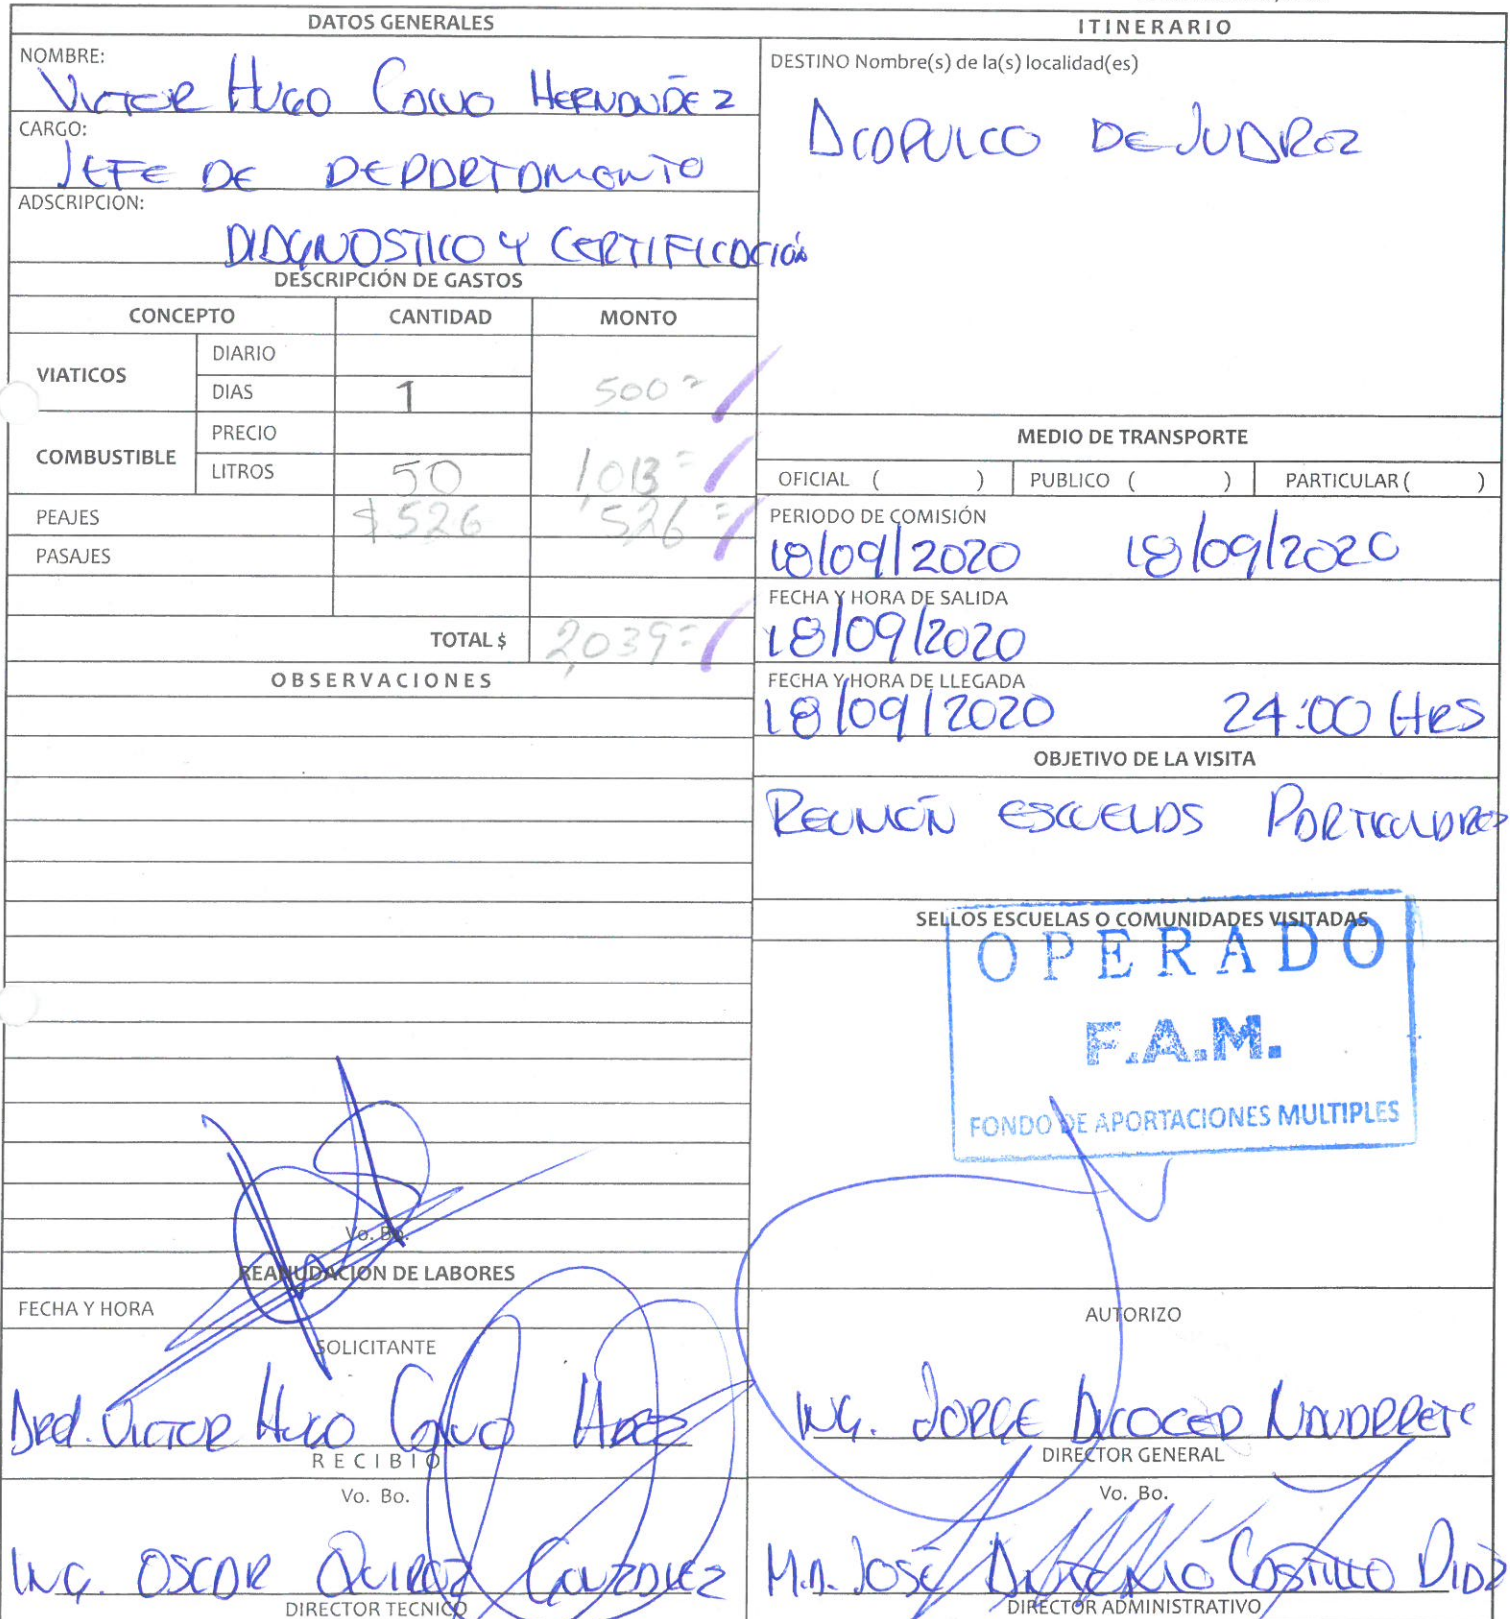 DATOS GENERALES
NOMBRE:
VICTOR HUGO CALVO HERNANDEZ
CARGO:
JEFE DE DEPARTAMENTO
ADSCRIPCION:
DIAGNOSTICO Y CERTIFICACIÓN
DESCRIPCIÓN DE GASTOS
CONCEPTO CANTIDAD MONTO
VIATICOS DIARIO
DIAS 1 500=
COMBUSTIBLE PRECIO
LITROS 50 1,013=
PEAJES $526 526=
PASAJES
TOTAL $ 2,039=
OBSERVACIONES
Vo. Bo.
REANUDACION DE LABORES
FECHA Y HORA
SOLICITANTE
ARQ. VICTOR HUGO CALVO HDEZ
RECIBIO
Vo. Bo.
ING. OSCAR QUIROZ GONZALEZ
DIRECTOR TECNICO
ITINERARIO
DESTINO Nombre(s) de la(s) localidad(es)
ACAPULCO DE JUAREZ
MEDIO DE TRANSPORTE
OFICIAL ( ) PUBLICO ( ) PARTICULAR ( )
PERIODO DE COMISIÓN
18/09/2020 18/09/2020
FECHA Y HORA DE SALIDA
18/09/2020
FECHA Y HORA DE LLEGADA
18/09/2020 24:00 HRS
OBJETIVO DE LA VISITA
REUNIÓN ESCUELAS PARTICULARES
SELLOS ESCUELAS O COMUNIDADES VISITADAS
OPERADO
F.A.M.
FONDO DE APORTACIONES MULTIPLES
AUTORIZO
ING. JORGE ALCOCER NAVARRETE
DIRECTOR GENERAL
Vo. Bo.
M.A. JOSÉ ANTONIO CASTILLO DIAZ
DIRECTOR ADMINISTRATIVO